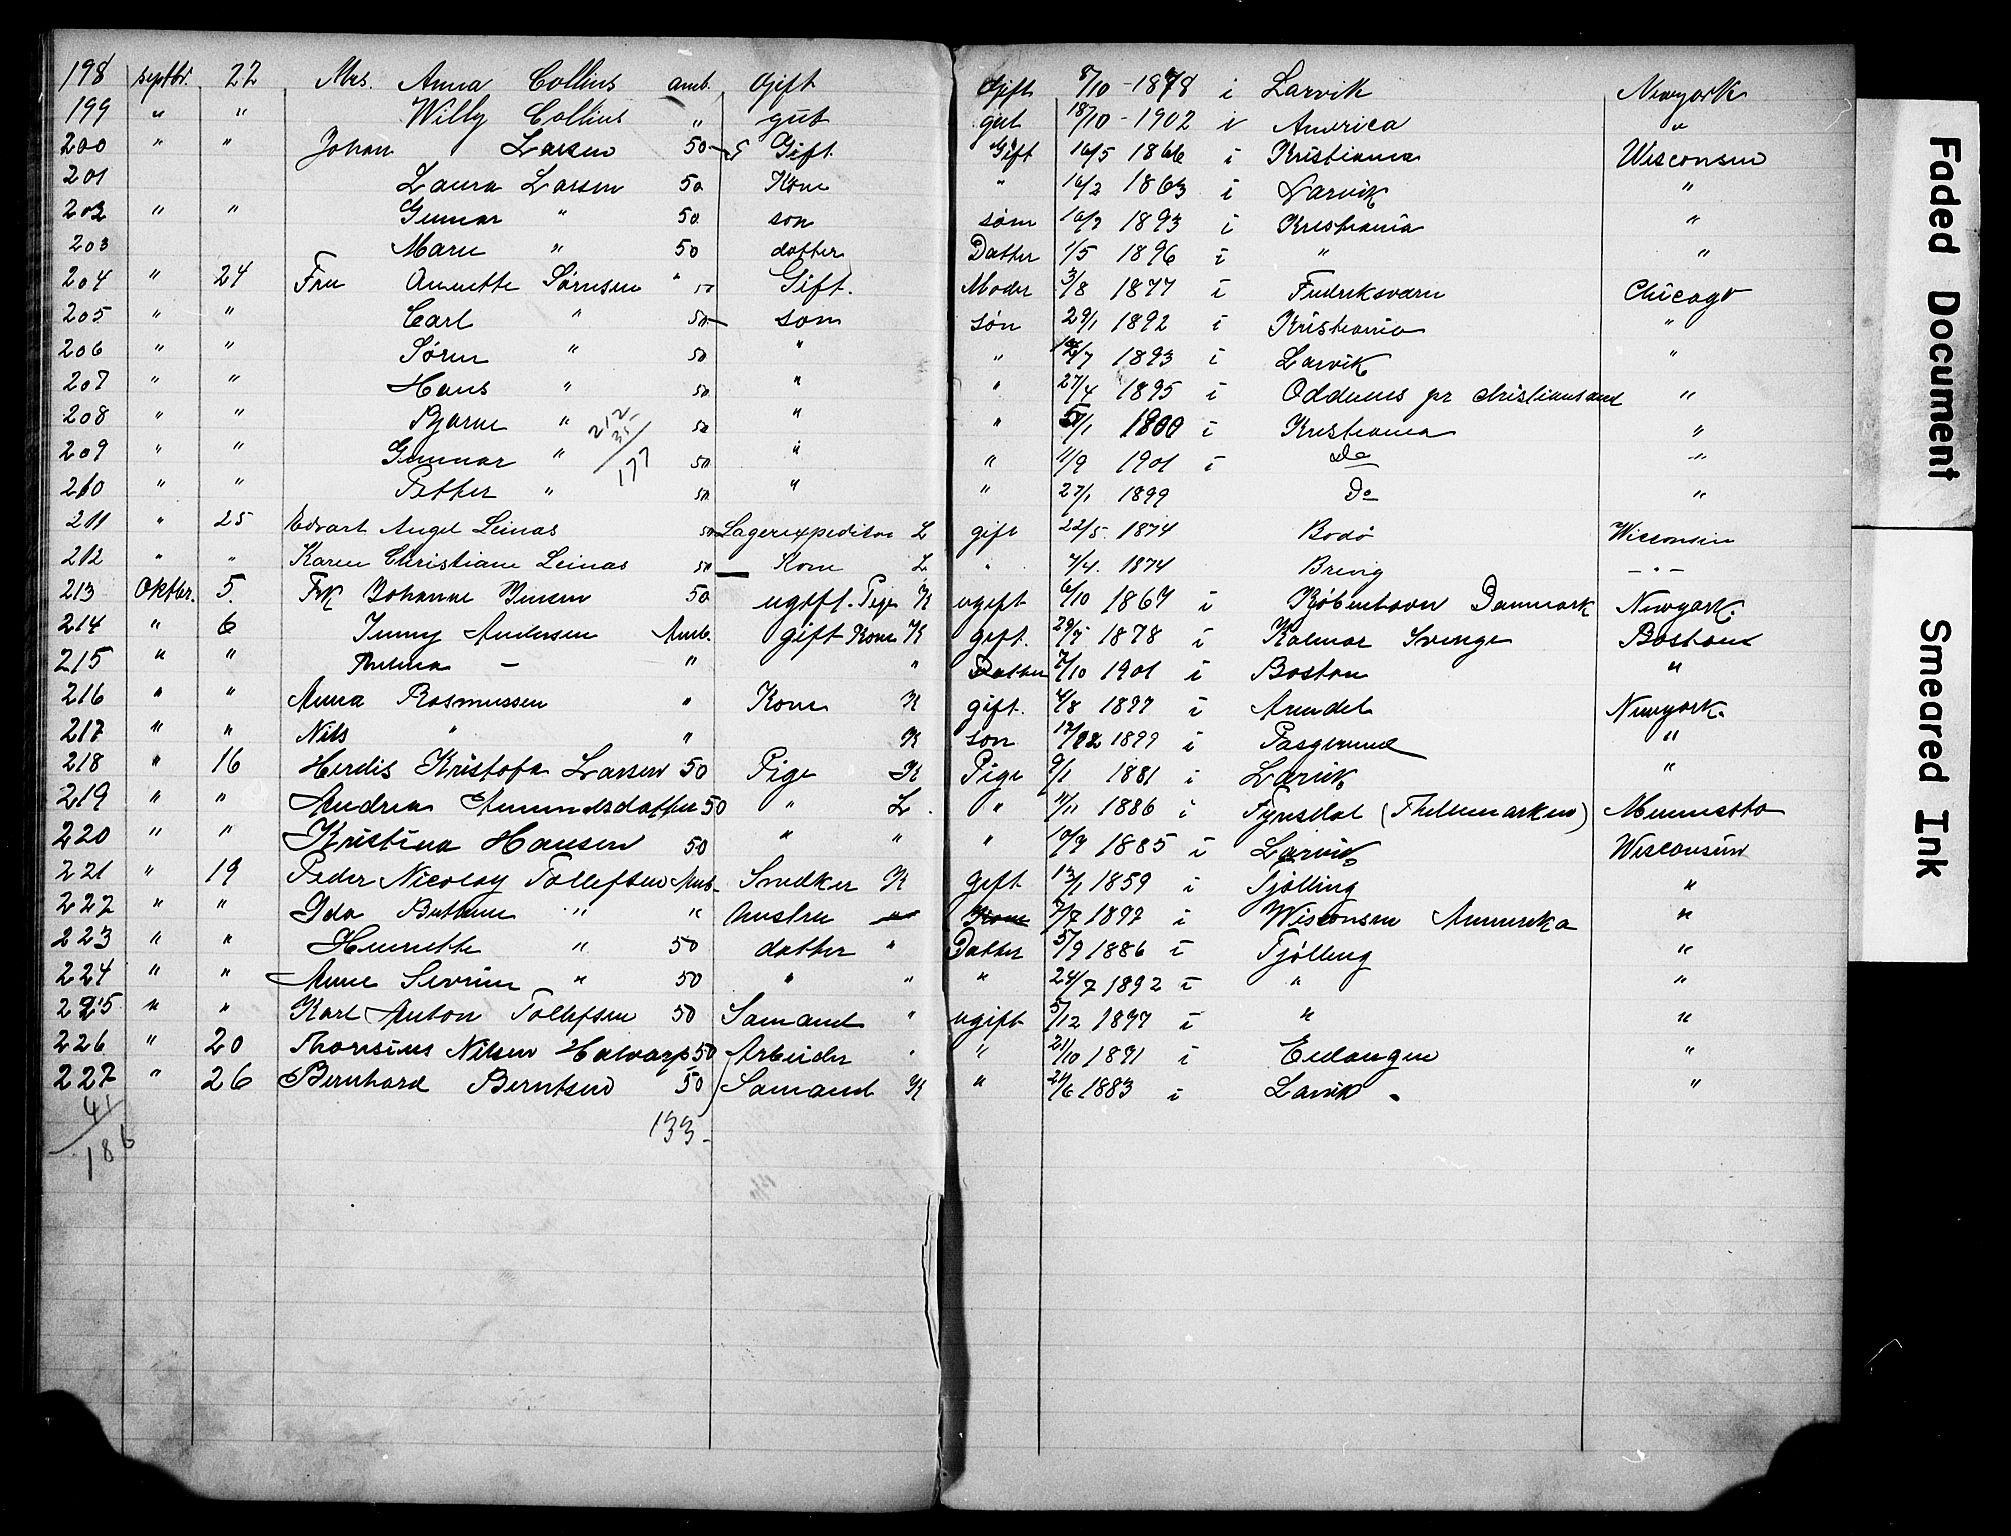 198 septbr. 22 Mrs. Anna Collins amb. Gift Gift 8/10 - 1878 i Larvik Newyork
199 " " Willy Collins " gut gut 18/10 - 1902 i America "
200 " " Johan Larsen 50 Gift Gift 16/5 1866 i Kristiania Wisconsin
201 Laura Larsen 50 Kone " 16/2 1863 i Larvik "
202 " " Gunnar " 50 son søn 16/2 1893 i Kristiania "
203 Marie " 50 datter Datter 1/5 1896 i " "
204 " 24 Fru Annette Sørnsen " 50 Gift. Moder 3/8 1877 i Fredriksværn Chicago
205 " " Carl " 50 søn søn 29/1 1892 i Kristiania "
206 " " Søren " 50 " " /7 1893 i Larvik "
207 " " Hans " 50 " " 27/4 1895 i Oddernes pr christiansand "
208 " " Bjarne " 50 " " 5/1 1800 i Kristiania "
209 " " Gunnar " 50 " " 11/9 1901 i Do "
210 " " Petter " 50 " " 27/1 1899 Do "
212
35
177
211 " 25 Edvart Angel Leinas 50 Lagerexpeditør L gift 22/5 1874 Bodø Wisconsin
212 " " Karen Christiane Leinas 50 Kone L " 7/4. 1874 Brevig - " -
213 Oktbr. 5. Frk Johanne Jensen 50 ugift. Pige K ugift 6/10 1867 i Kjøbenhavn Danmark Newyork.
214 " 6 Jenny Andersen Amb. gift Kone K gift. 29/5 1878 i Kalmar Sverige Boston
215 " " Thelma - " " Datter 7/10 1901 i Boston "
216 " " Anna Rasmussen " Kone K gift. 4/8 1877 i Arendal Newyork.
217 " " Nils " " K søn 17/12 1899 i Pasgrund "
218 " 16 Herdis Kristofa Larsen 50 Pige K Pige 9/1 1881 i Larvik "
219 " " Andrea Amundsdatter 50 " L. " 11/11 1886 i Fyrisdal (Thellemarken) Minnesota
220 " " Kristina Hansen 50 " " " 10/9 1885 i Larvik Wisconsin
221 " 19 Peder Nicolay Tollefsen Amb. Snedker K gift 13/1 1859 i Tjølling "
222 " " Ida Bethine " " hustru " Kone 7/7 1897 i Wisconsin Amerika "
223 " " Henriette " 50 datter " Datter 5/9 1886 i Tjølling "
224 " " Anne Sevrine " 50 " " " 24/7 1892 i " "
225 " " Karl Anton Tollefsen 50 Sømand " ugift 5/12 1897 i " "
226 " 20 Thorsius Nilsen Halvarp 50 Arbeider " " 21/10 1891 i Eidanger "
227 " 26 Bernhard Berntsen 50 Sømand K " 24/6 1883 i Larvik. "
41
186
133-
Faded Document
Smeared Ink